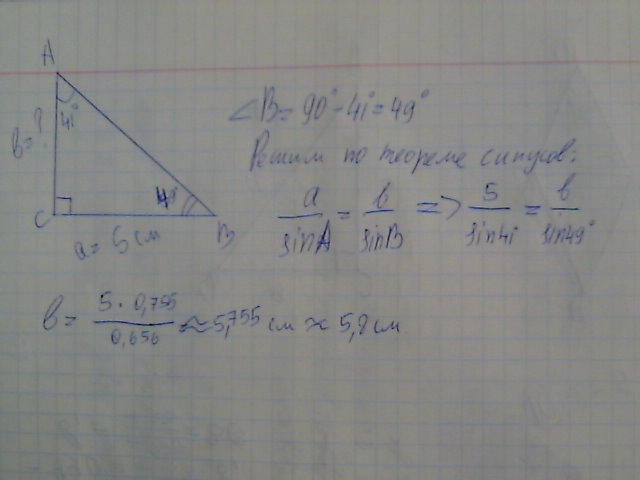 A
41°
b = ?
C
a = 5 см
B
∠B = 90° - 41° = 49°
Решим по теореме синусов:
a/sinA = b/sinB => 5/sin41 = b/sin49°
b = 5 · 0,755/0,656 ≈ 5,755 см ≈ 5,8 см